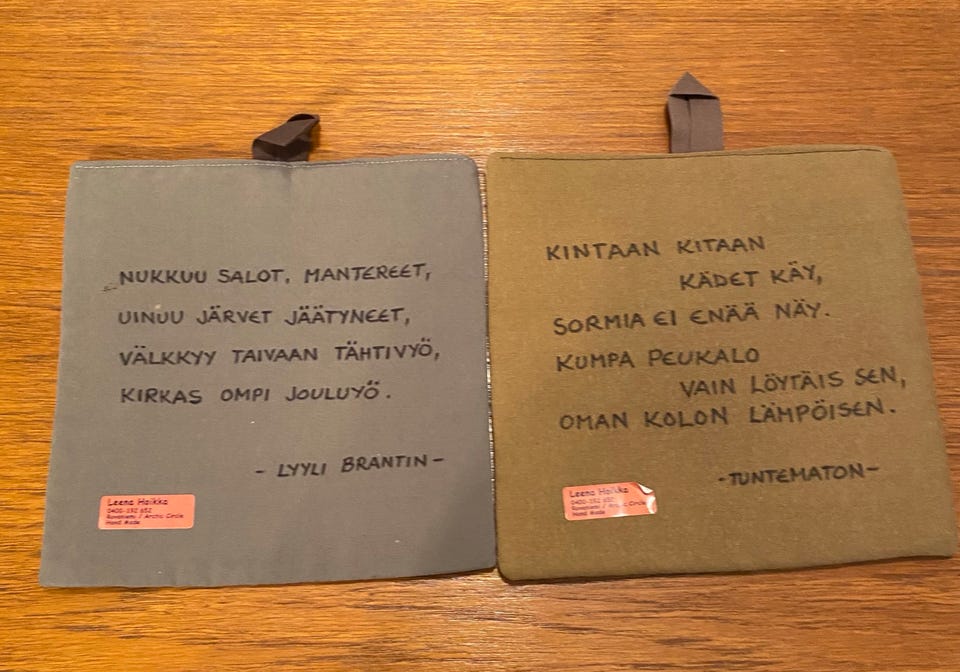 NUKKUU SALOT, MANTEREET,
UINUU JÄRVET JÄÄTYNEET,
VÄLKKYY TAIVAAN TÄHTIVYÖ,
KIRKAS OMPI JOULUYÖ.
- LYYLI BRANTIN -
Leena Haikka
0400-332 652
Rovaniemi / Arctic Circle
Hand Made
KINTAAN KITAAN
KÄDET KÄY,
SORMIA EI ENÄÄ NÄY.
KUMPA PEUKALO
VAIN LÖYTÄIS SEN,
OMAN KOLON LÄMPÖISEN.
-TUNTEMATON-
Leena Haikka
0400-332 652
Rovaniemi / Arctic Circle
Hand Made